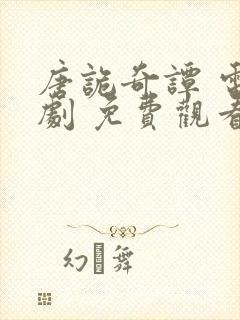 唐詭奇譚 電
劇 免費觀看
幻 舞